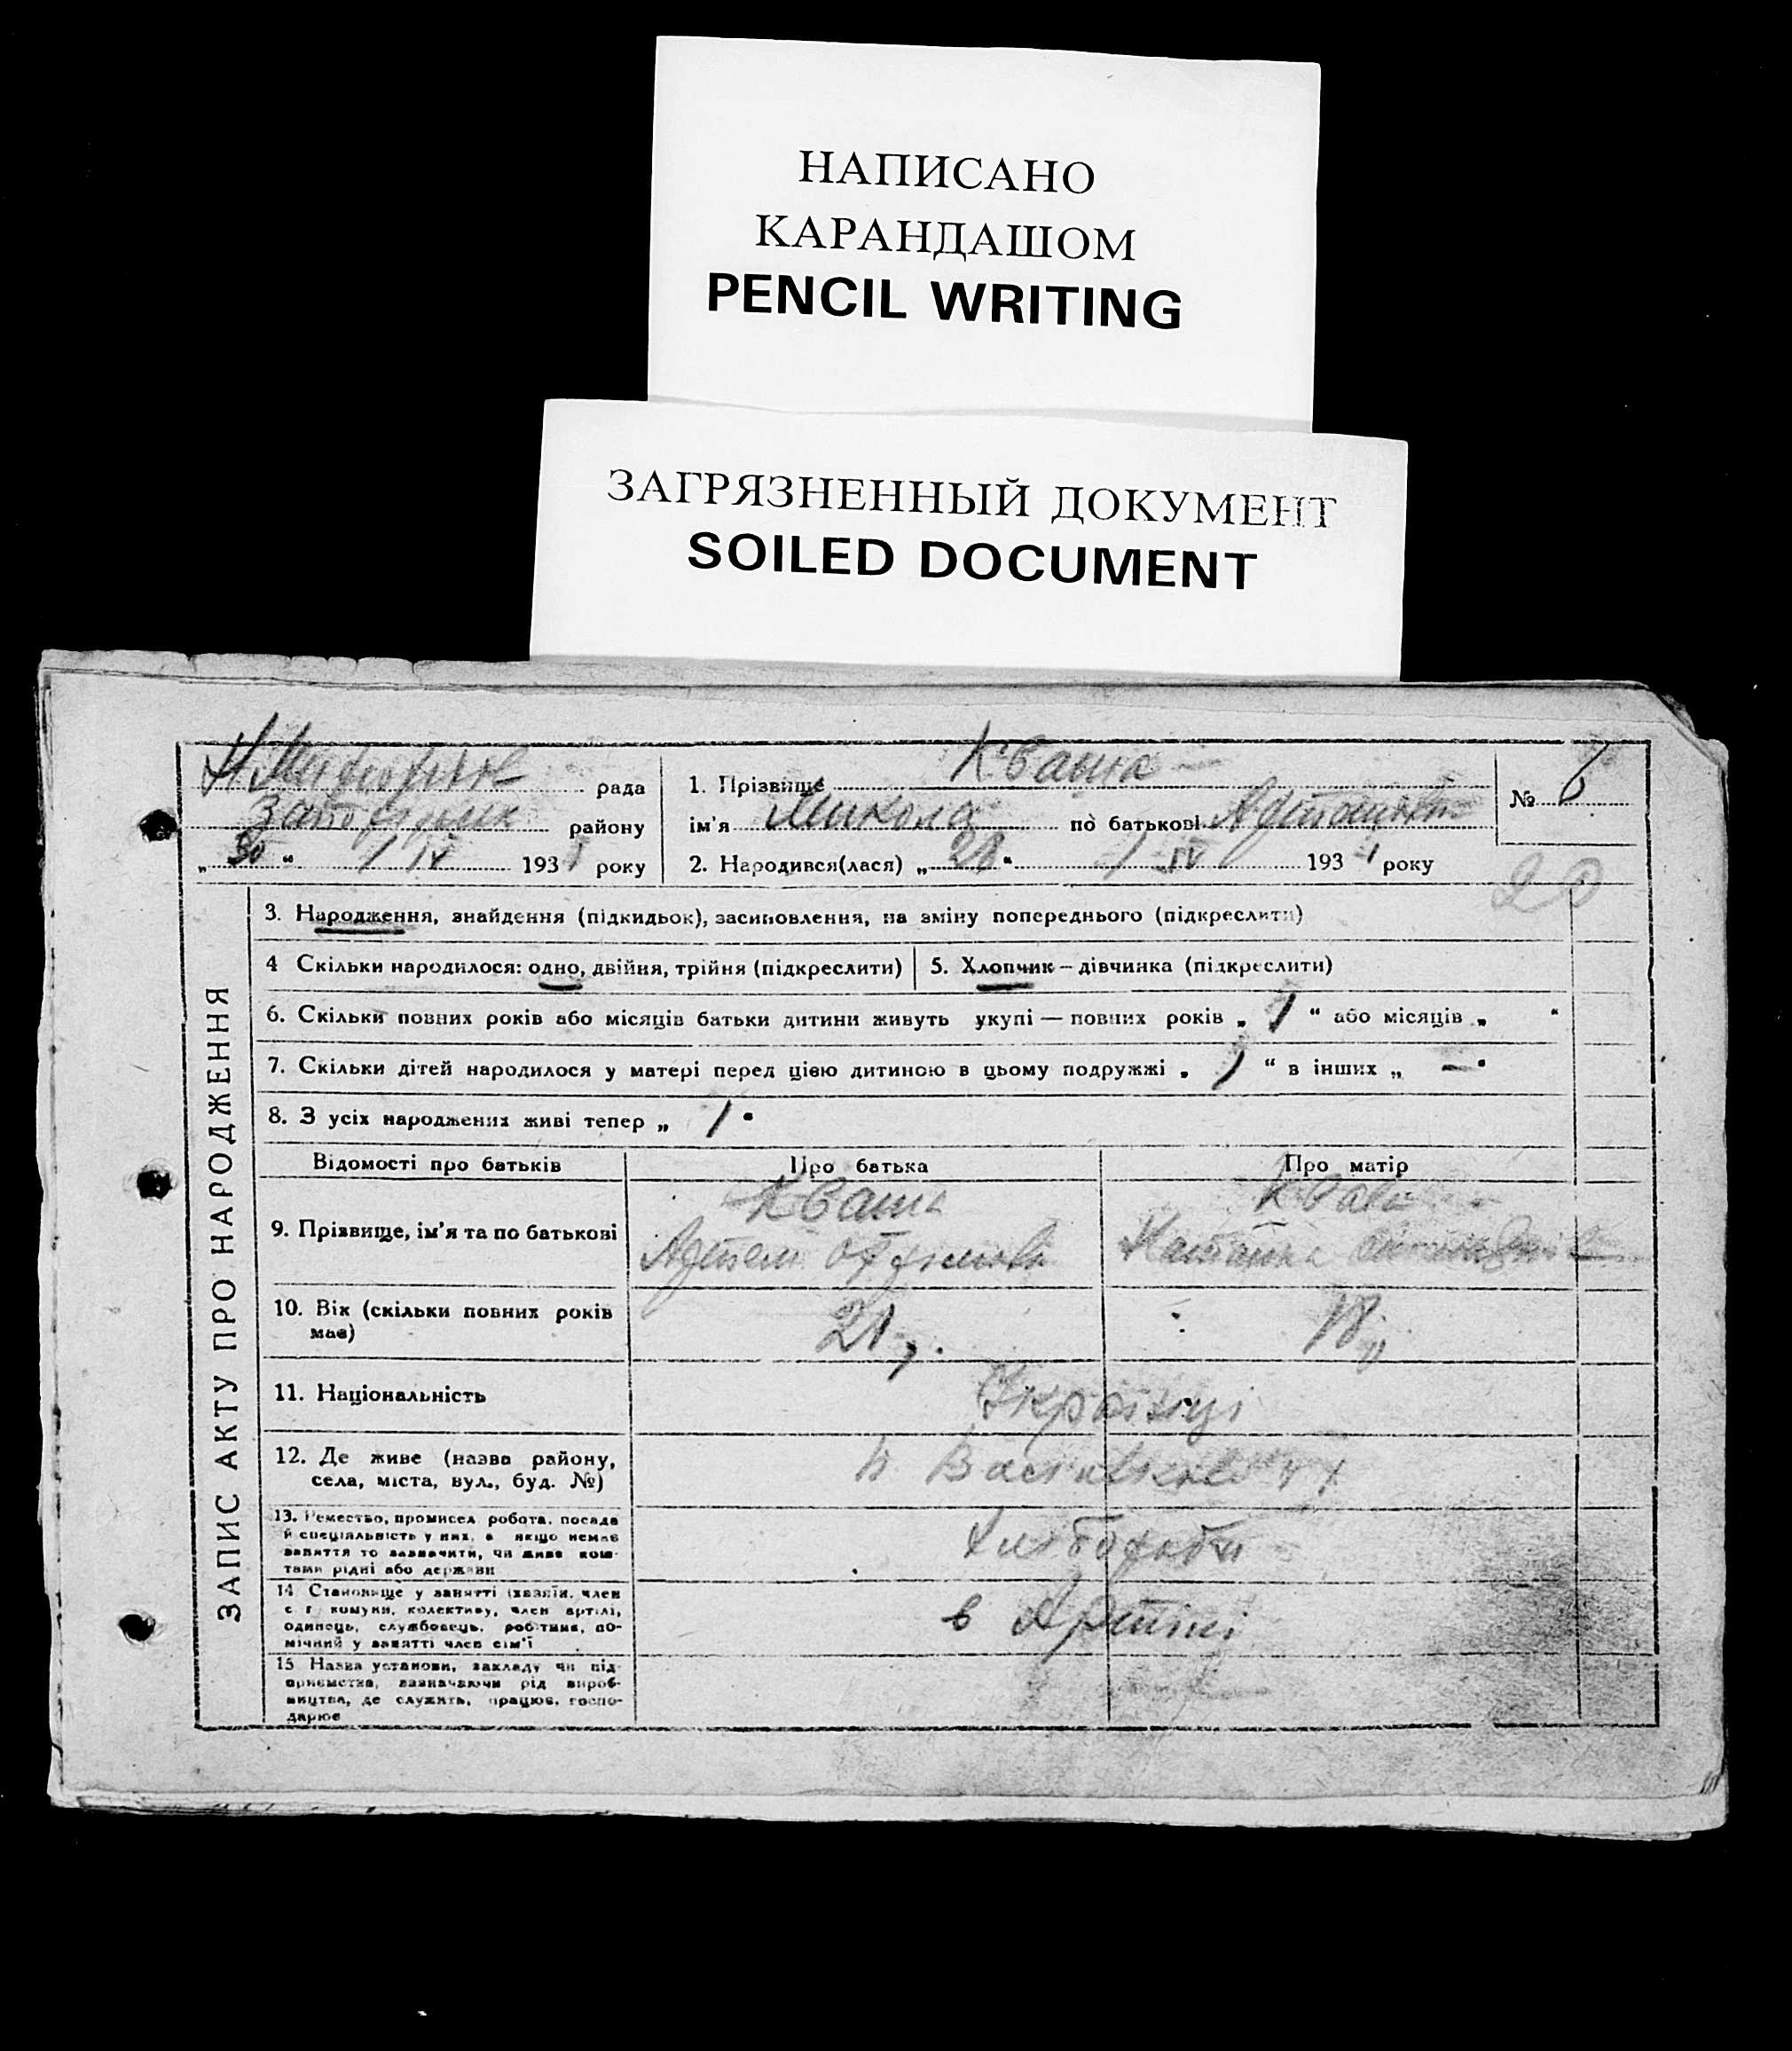 НАПИСАНО
КАРАНДАШОМ
PENCIL WRITING
ЗАГРЯЗНЕННЫЙ ДОКУМЕНТ
SOILED DOCUMENT
рада
району
„ 30 “ / IV 193 року
1. Прізвище Кваша
ім'я Микола по батькові
2. Народився(лася) „ 28 “ / IV 193 1 року
№ 6
20
ЗАПИС АКТУ ПРО НАРОДЖЕННЯ
3. Народження, знайдення (підкидьок), засиновлення, на зміну попереднього (підкреслити)
4 Скільки народилося: одно, двійня, трійня (підкреслити)
5. Хлопчик – дівчинка (підкреслити)
6. Скільки повних років або місяців батьки дитини живуть укупі — повних років „ 1 “ або місяців „ “
7. Скільки дітей народилося у матері перед цією дитиною в цьому подружжі „ 1 “ в інших „ — “
8. З усіх народжених живі тепер „ 1 “
Відомості про батьків
Про батька
Про матір
9. Прізвище, ім'я та по батькові
Кваша
Артем
10. Вік (скільки повних років має)
21
18
11. Національність
Українці
12. Де живе (назва району, села, міста, вул., буд. №)
13. Ремество, промисел робота, посада й спеціяльність у них, а якщо немає заняття то зазначити, чи живе коштами рідні або держави
Хлібороби
14 Становище у занятті (хазяїн, член с. г. комуни, колективу, член артілі, одинець, службовець, робітник, помічний у занятті член сім'ї
в Артілі
15 Назва установи, закладу чи підприємства, зазначаючи рід виробництва, де служить, працює, господарює